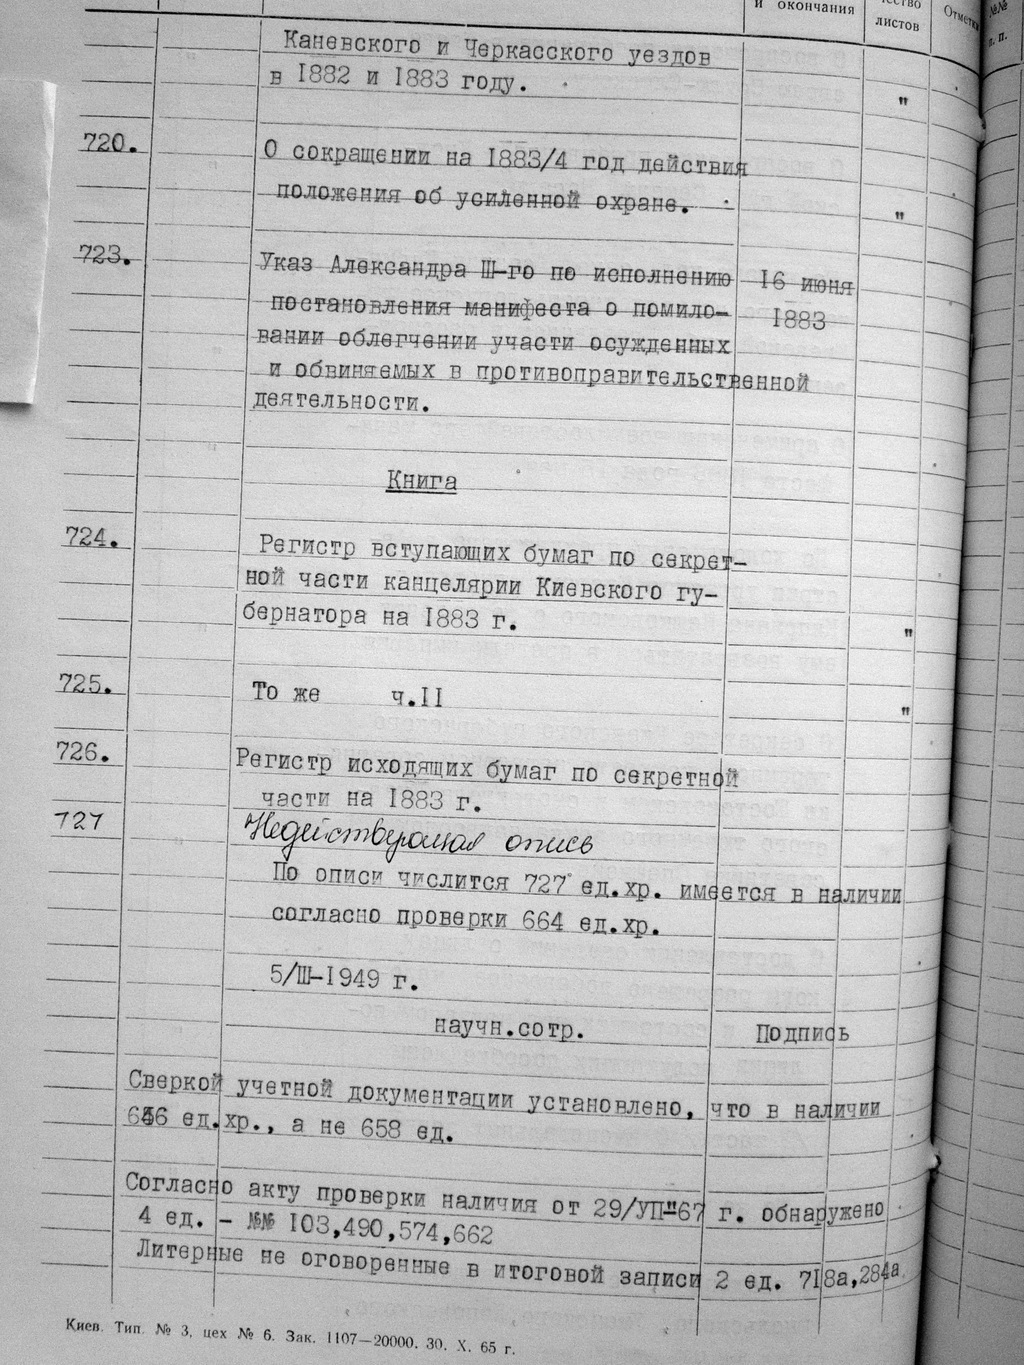 и окончания
листов
Отметки
№№
п. п.
Каневского и Черкасского уездов
в 1882 и 1883 году. "
720. О сокращении на 1883/4 год действия
положения об усиленной охране. "
723. Указ Александра Ш-го по исполнению 16 июня
постановления манифеста о помило- 1883
вании облегчении участи осужденных
и обвиняемых в противоправительственной
деятельности.
Книга
724. Регистр вступающих бумаг по секрет-
ной части канцелярии Киевского гу-
бернатора на 1883 г. "
725. То же ч.II "
726. Регистр исходящих бумаг по секретной
части на 1883 г.
727 Недействуюмая опись
По описи числится 727 ед.хр. имеется в наличии
согласно проверки 664 ед.хр.
5/Ш-1949 г.
научн.сотр. Подпись
Сверкой учетной документации установлено, что в наличии
ед.хр., а не 658 ед.
Согласно акту проверки наличия от 29/УП-67 г. обнаружено
4 ед. - №№ 103,490,574,662
Литерные не оговоренные в итоговой записи 2 ед. 718а,284а
Киев. Тип. № 3, цех № 6. Зак. 1107—20000. 30. X. 65 г.